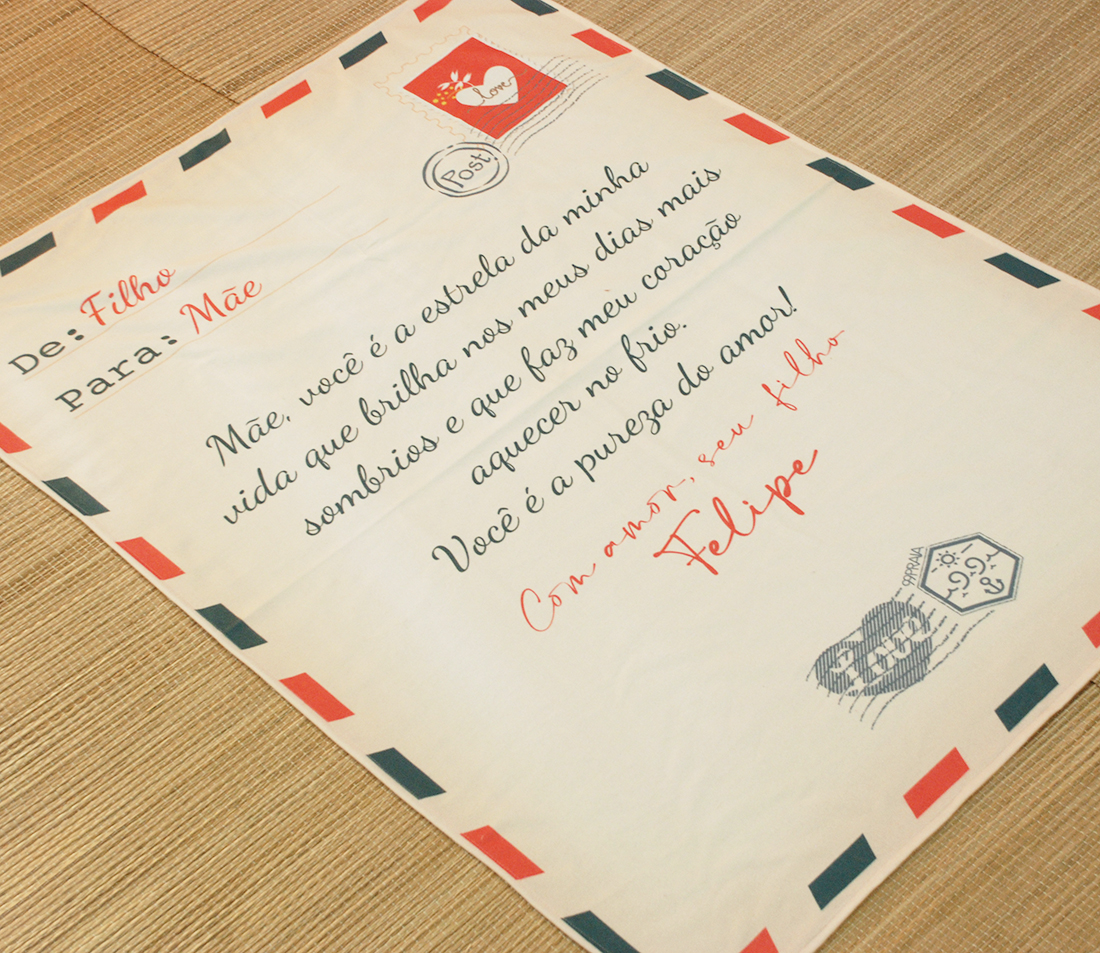 love
Post
De: Filho
Para: Mãe
Mãe, você é a estrela da minha
vida que brilha nos meus dias mais
sombrios e que faz meu coração
aquecer no frio.
Você é a pureza do amor!
Com amor, seu filho
Felipe
99PRAIA